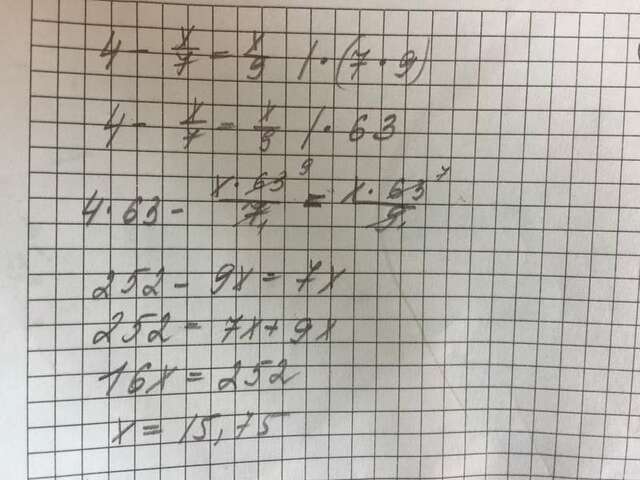 4 - x/7 = x/9 | · (7 · 9)
4 - x/7 = x/9 | · 63
4 · 63 - x · 63⁹/7₁ = x · 63⁷/9₁
252 - 9x = 7x
252 = 7x + 9x
16x = 252
x = 15,75